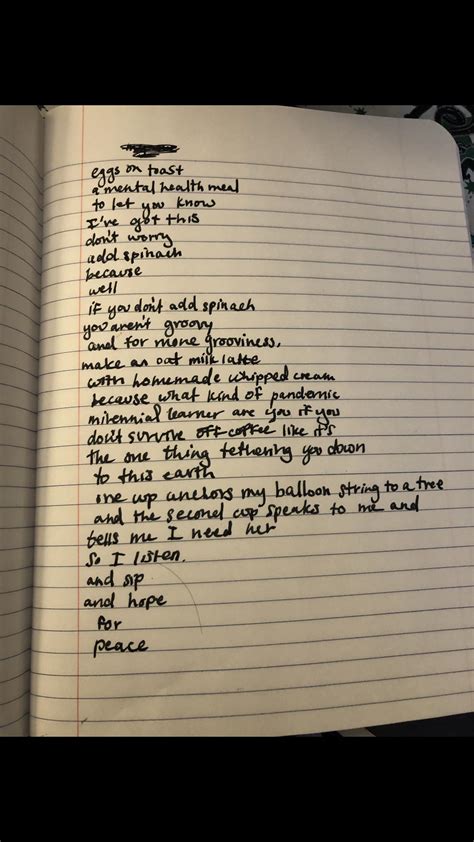 eggs on toast
a mental health meal
to let you know
I've got this
don't worry
add spinach
because
well
if you don't add spinach
you aren't groovy
and for more grooviness,
make an oat milk latte
with homemade whipped cream
because what kind of pandemic
milennial learner are you if you
don't survive off coffee like it's
the one thing tethering you down
to this earth
one cup anchors my balloon string to a tree
and the second cup speaks to me and
tells me I need her
So I listen.
and sip
and hope
for
peace